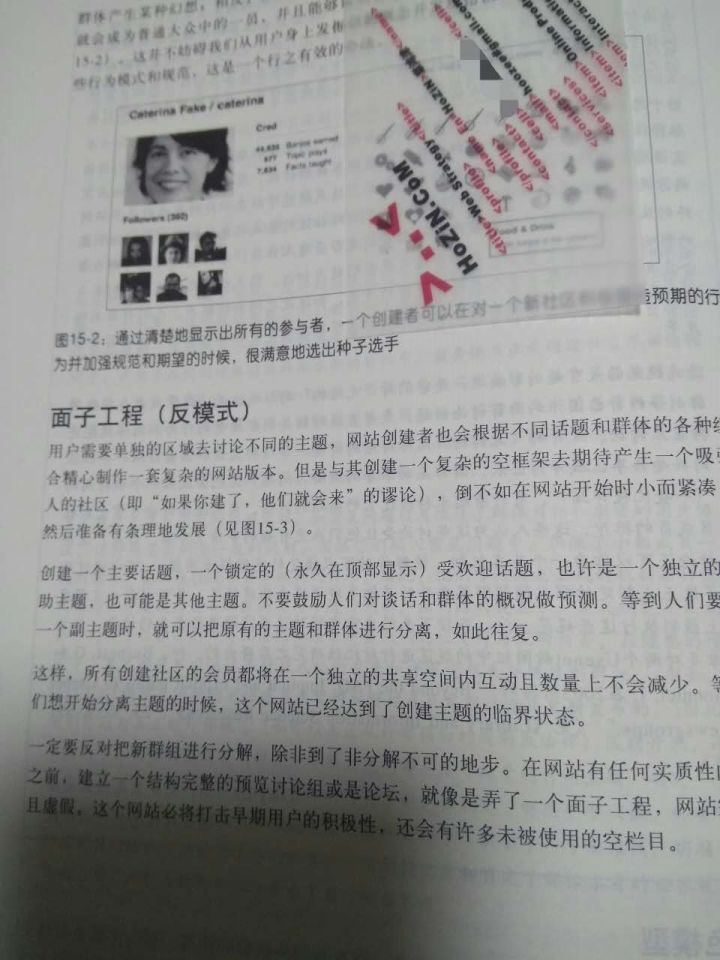 群体产生某种幻想，相反
就会成为普通大众中的一员，并且能够
15-2）。这并不妨碍我们从用户身上发掘
些行为模式和规范，这是一个行之有效的
Caterina Fake / caterina
Cred
Topic plays
7,634 Facts taught
Followers (302)
Food & Drink
HoZiN.CoM
<title>Web Strategy
<profile>
<contact>
<cell>
<mail>hoozee@gmail.com
<services>
<item>Online Prod
<item>Informatio
<item>Interact
图15-2：通过清楚地显示出所有的参与者，一个创建者可以在对一个新社区 造预期的行
为并加强规范和期望的时候，很满意地选出种子选手
面子工程（反模式）
用户需要单独的区域去讨论不同的主题，网站创建者也会根据不同话题和群体的各种组
合精心制作一套复杂的网站版本。但是与其创建一个复杂的空框架去期待产生一个吸引
人的社区（即“如果你建了，他们就会来”的谬论），倒不如在网站开始时小而紧凑
然后准备有条理地发展（见图15-3）。
创建一个主要话题，一个锁定的（永久在顶部显示）受欢迎话题，也许是一个独立的
助主题，也可能是其他主题。不要鼓励人们对谈话和群体的概况做预测。等到人们要
一个副主题时，就可以把原有的主题和群体进行分离，如此往复。
这样，所有创建社区的会员都将在一个独立的共享空间内互动且数量上不会减少。等
们想开始分离主题的时候，这个网站已经达到了创建主题的临界状态。
一定要反对把新群组进行分解，除非到了非分解不可的地步。在网站有任何实质性的
之前，建立一个结构完整的预览讨论组或是论坛，就像是弄了一个面子工程，网站
且虚假。这个网站必将打击早期用户的积极性，还会有许多未被使用的空栏目。